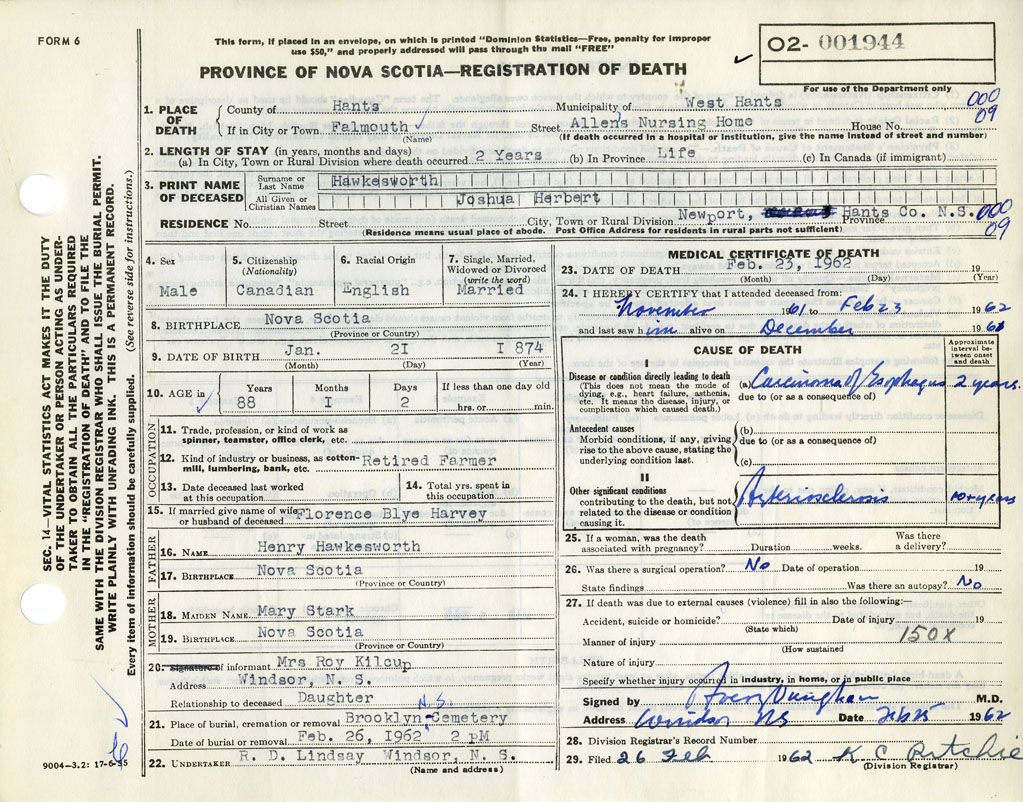 FORM 6
This form, if placed in an envelope, on which is printed "Dominion Statistics—Free, penalty for improper
use $50," and properly addressed will pass through the mail "FREE"
PROVINCE OF NOVA SCOTIA—REGISTRATION OF DEATH
O2- 001944
For use of the Department only
000
09
1. PLACE OF DEATH
County of Hants Municipality of West Hants
If in City or Town Falmouth Street Allen's Nursing Home House No.
(Name) (If death occurred in a hospital or institution, give the name instead of street and number)
2. LENGTH OF STAY (in years, months and days)
(a) In City, Town or Rural Division where death occurred 2 Years (b) In Province Life (c) In Canada (if immigrant)
3. PRINT NAME OF DECEASED
Surname or Last Name Hawkesworth
All Given or Christian Names Joshua Herbert
RESIDENCE No. Street City, Town or Rural Division Newport, Hants Co. N.S. Province
000
09
(Residence means usual place of abode. Post Office Address for residents in rural parts not sufficient)
4. Sex
Male
5. Citizenship
(Nationality)
Canadian
6. Racial Origin
English
7. Single, Married,
Widowed or Divorced
(write the word)
Married
8. BIRTHPLACE Nova Scotia
(Province or Country)
9. DATE OF BIRTH Jan. 2I I 874
(Month) (Day) (Year)
10. AGE in
Years Months Days If less than one day old
88 I 2 hrs. or min.
OCCUPATION
11. Trade, profession, or kind of work as
spinner, teamster, office clerk, etc.
12. Kind of industry or business, as cotton-
mill, lumbering, bank, etc. Retired Farmer
13. Date deceased last worked
at this occupation
14. Total yrs. spent in
this occupation
15. If married give name of wife
or husband of deceased Florence Blye Harvey
FATHER
16. NAME Henry Hawkesworth
17. BIRTHPLACE Nova Scotia
(Province or Country)
MOTHER
18. MAIDEN NAME Mary Stark
19. BIRTHPLACE Nova Scotia
(Province or Country)
20. Signature of informant Mrs Roy Kilcup
Address Windsor, N. S.
Relationship to deceased Daughter
N.S.
21. Place of burial, cremation or removal Brooklyn Cemetery
Date of burial or removal Feb. 26, 1962 2 pM
22. UNDERTAKER R. D. Lindsay Windsor, N. S.
(Name and address)
MEDICAL CERTIFICATE OF DEATH
23. DATE OF DEATH Feb. 23, 1962 19
(Month) (Day) (Year)
24. I HEREBY CERTIFY that I attended deceased from:
November 1961 to Feb 23 1962
and last saw him alive on December 1961
CAUSE OF DEATH
Approximate
interval be-
tween onset
and death
I
Disease or condition directly leading to death
(This does not mean the mode of
dying, e.g., heart failure, asthenia,
etc. It means the disease, injury, or
complication which caused death.)
(a) Carcinoma of Esophagus 2 years.
due to (or as a consequence of)
Antecedent causes
Morbid conditions, if any, giving
rise to the above cause, stating the
underlying condition last.
(b)
due to (or as a consequence of)
(c)
II
Other significant conditions
contributing to the death, but not
related to the disease or condition
causing it.
Arteriosclerosis 10+ years
25. If a woman, was the death
associated with pregnancy? Duration weeks. Was there
a delivery?
26. Was there a surgical operation? No Date of operation 19
State findings Was there an autopsy? No
27. If death was due to external causes (violence) fill in also the following:—
Accident, suicide or homicide? Date of injury 19
(State which) 150X
Manner of injury
(How sustained
Nature of injury
Specify whether injury occurred in industry, in home, or in public place
Signed by Avery M.D.
Address Windsor NS Date Feb 25 1962
28. Division Registrar's Record Number
29. Filed 26 Feb 1962 K C Ritchie
(Division Registrar)
SEC. 14—VITAL STATISTICS ACT MAKES IT THE DUTY
OF THE UNDERTAKER OR PERSON ACTING AS UNDER-
TAKER TO OBTAIN ALL THE PARTICULARS REQUIRED
IN THE "REGISTRATION OF DEATH" AND TO FILE THE
SAME WITH THE DIVISION REGISTRAR WHO SHALL ISSUE THE BURIAL PERMIT.
WRITE PLAINLY WITH UNFADING INK. THIS IS A PERMANENT RECORD.
Every item of information should be carefully supplied. (See reverse side for instructions.)
9004—3.2: 17-6-55